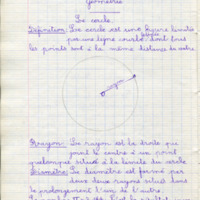 Géométrie
Le cercle
Définition: Le cercle est une figure limitée
par une ligne courbe dont tous
les points sont à la même distance du centre
Rayon
Rayon: Le rayon est la droite qui
joint le centre à un point
quelconque situé à la limite du cercle
Diamètre: Le diamètre est formé par
deux rayons situés dans
le prolongement l'un de l'autre.